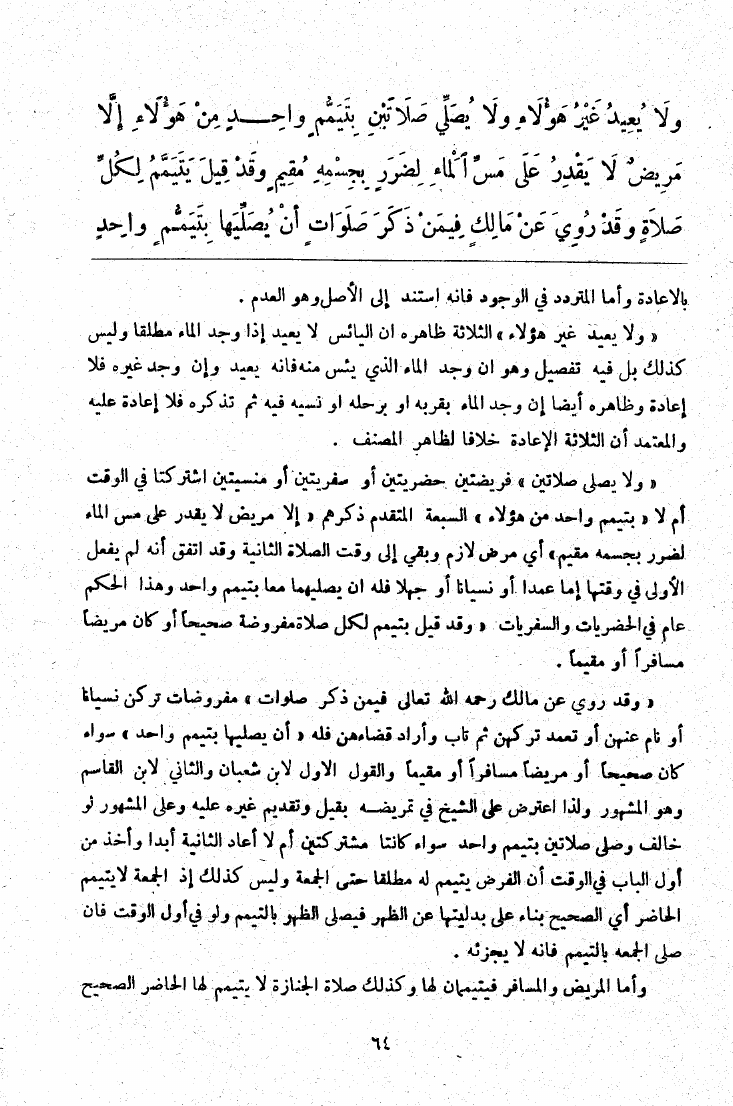 ولَا يُعِيدُ غَيْرُ هَؤُلَاءِ ولَا يُصَلِّي صَلَاتَيْنِ بِتَيَمُّمٍ واحِـــدٍ مِنْ هَؤُلَاءِ إِلَّا
مَرِيضٌ لَا يَقْدِرُ عَلَى مَسِّ ٱلْمَاءِ لِضَرَرٍ بِجِسْمِهِ مُقِيمٍ وقَدْ قِيلَ يَتَيَمَّمُ لِكُلِّ
صَلَاةٍ وقَدْ رُوِيَ عَنْ مَالِكٍ فِيمَنْ ذَكَرَ صَلَوَاتٍ أَنْ يُصَلِّيَهَا بِتَيَمُّمٍ واحِدٍ
بالاعادة وأما المتردد في الوجود فانه استند إلى الأصل وهو العدم .
« ولا يعيد غير هؤلاء » الثلاثة ظاهره ان اليائس لا يعيد إذا وجد الماء مطلقا وليس
كذلك بل فيه تفصيل وهو ان وجد الماء الذي يئس منه فانه يعيد وإن وجد غيره فلا
إعادة وظاهره أيضا إن وجد الماء بقربه او برحله او نسيه فيه ثم تذكره فلا إعادة عليه
والمعتمد أن الثلاثة الإعادة خلافا لظاهر المصنف .
« ولا يصلى صلاتين » فريضتين حضريتين أو سفريتين أو منسيتين اشتركتا في الوقت
أم لا « بتيمم واحد من هؤلاء » السبعة المتقدم ذكرهم « إلا مريض لا يقدر على مس الماء
لضرر بجسمه مقيم» أي مرض لازم وبقي إلى وقت الصلاة الثانية وقد اتفق أنه لم يفعل
الأولى في وقتها إما عمدا أو نسيانا أو جهلا فله ان يصليهما معا بتيمم واحد وهذا الحكم
عام في الحضريات والسفريات « وقد قيل بتيمم لكل صلاة مفروضة صحيحاً أو كان مريضاً
مسافراً أو مقيماً .
« وقد روي عن مالك رحمه الله تعالى فيمن ذكر صلوات » مفروضات تركن نسيانا
أو نام عنهن أو تعمد تركهن ثم تاب وأراد قضاءهن فله « أن يصليها بتيمم واحد » سواء
كان صحيحاً أو مريضاً مسافراً أو مقيماً والقول الاول لابن شعبان والثاني لابن القاسم
وهو المشهور ولذا اعترض على الشيخ في تمريضـــه بقيل وتقديم غيره عليه وعلى المشهور لو
خالف وصلى صلاتين بتيمم واحد سواء كانتا مشتركتين أم لا أعاد الثانية أبدا وأخذ من
أول الباب في الوقت أن الفرض يتيمم له مطلقا حتى الجمعة وليس كذلك إذ الجمعة لا يتيمم
الحاضر أي الصحيح بناء على بدليتها عن الظهر فيصلى الظهر بالتيمم ولو في أول الوقت فان
صلى الجمعه بالتيمم فانه لا يجزئه .
وأما المريض والمسافر فيتيممان لها وكذلك صلاة الجنازة لا يتيمم لها الحاضر الصحيح
٦٤